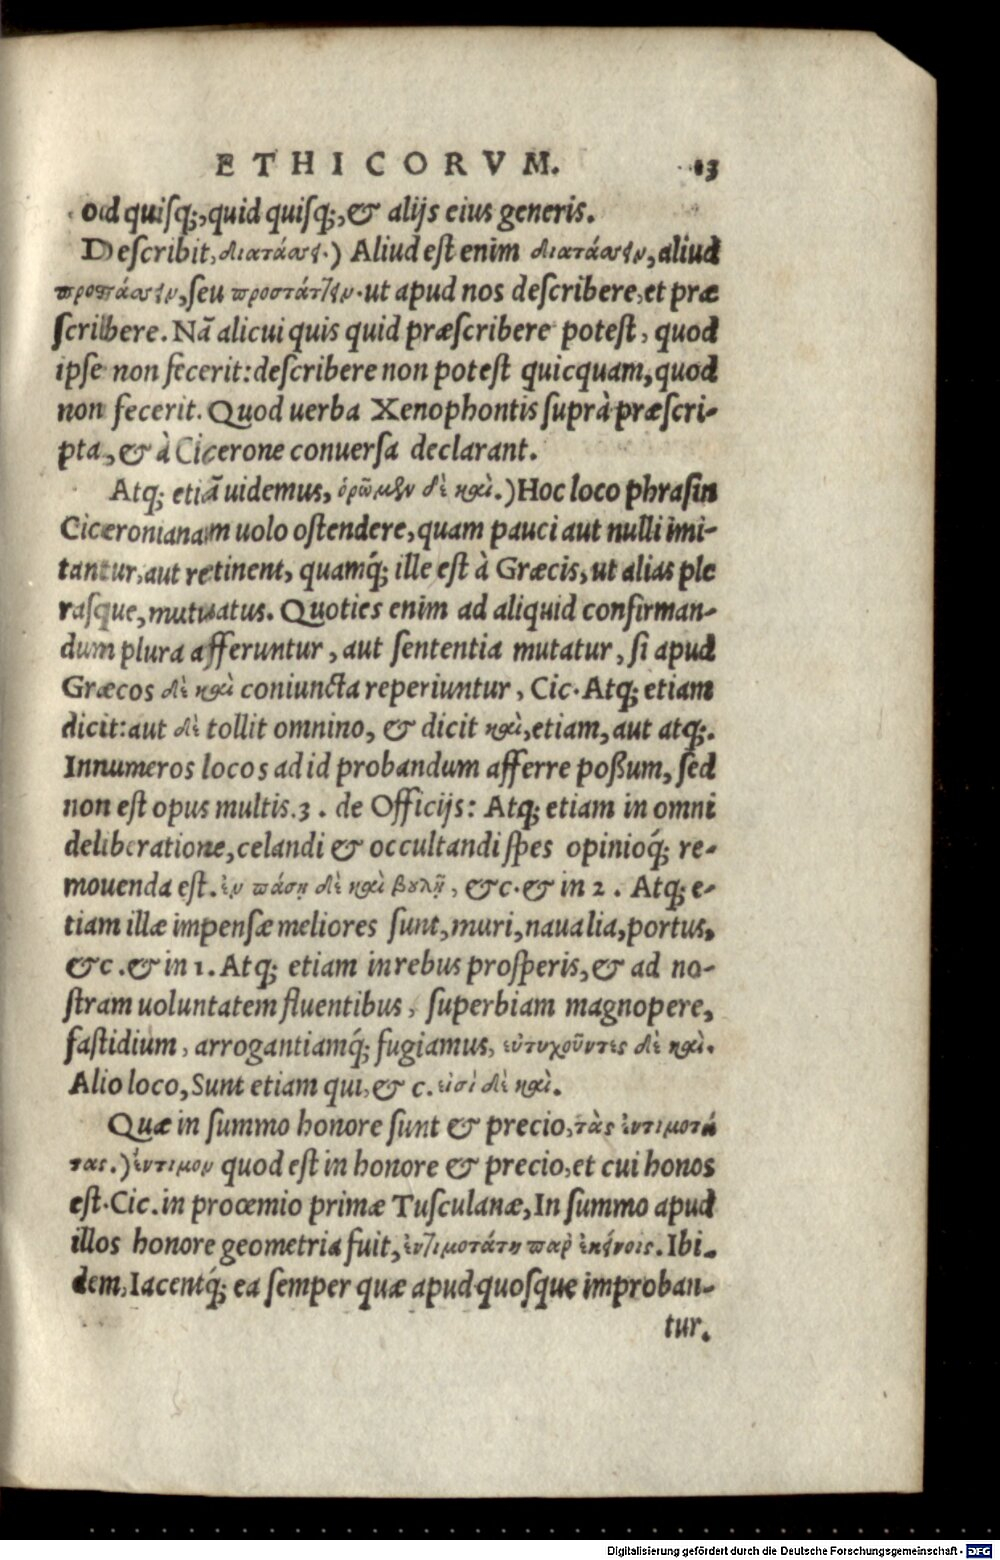 ETHICORVM. 13
od quisq;, quid quisq;, & alijs eius generis.
Describit, διατάσσει.) Aliud est enim διατάσσειν, aliud
προστάσσειν, seu προστάττειν. ut apud nos describere, et præ
scribere. Nā alicui quis quid præscribere potest, quod
ipse non fecerit: describere non potest quicquam, quod
non fecerit. Quod uerba Xenophontis suprà præscri-
pta, & à Cicerone conuersa declarant.
Atq; etiā uidemus, ὁρῶμεν δὲ καὶ.) Hoc loco phrasin
Ciceronianam uolo ostendere, quam pauci aut nulli imi-
tantur, aut retinent, quamq́; ille est à Græcis, ut alias ple
rasque, mutuatus. Quoties enim ad aliquid confirman-
dum plura afferuntur, aut sententia mutatur, si apud
Græcos δὲ καὶ coniuncta reperiuntur, Cic. Atq; etiam
dicit: aut δὲ tollit omnino, & dicit καὶ, etiam, aut atq;.
Innumeros locos ad id probandum afferre poßum, sed
non est opus multis. 3. de Officijs: Atq; etiam in omni
deliberatione, celandi & occultandi spes opinioq́; re-
mouenda est. ἐν πάσῃ δὲ καὶ βουλῇ, &c. & in 2. Atq; e-
tiam illæ impensæ meliores sunt, muri, naualia, portus,
&c. & in 1. Atq; etiam in rebus prosperis, & ad no-
stram uoluntatem fluentibus, superbiam magnopere,
fastidium, arrogantiamq́; fugiamus, εὐτυχοῦντες δὲ καὶ.
Alio loco, Sunt etiam qui, & c. εἰσὶ δὲ καὶ.
Quæ in summo honore sunt & precio, τὰς ἐντιμοτά
τας.) ἔντιμον quod est in honore & precio, et cui honos
est. Cic. in proœmio primæ Tusculanæ, In summo apud
illos honore geometria fuit, ἐντιμοτάτη παρ' ἐκείνοις. Ibi-
dem, Iacentq́; ea semper quæ apud quosque improban-
tur.
Digitalisierung gefördert durch die Deutsche Forschungsgemeinschaft - DFG